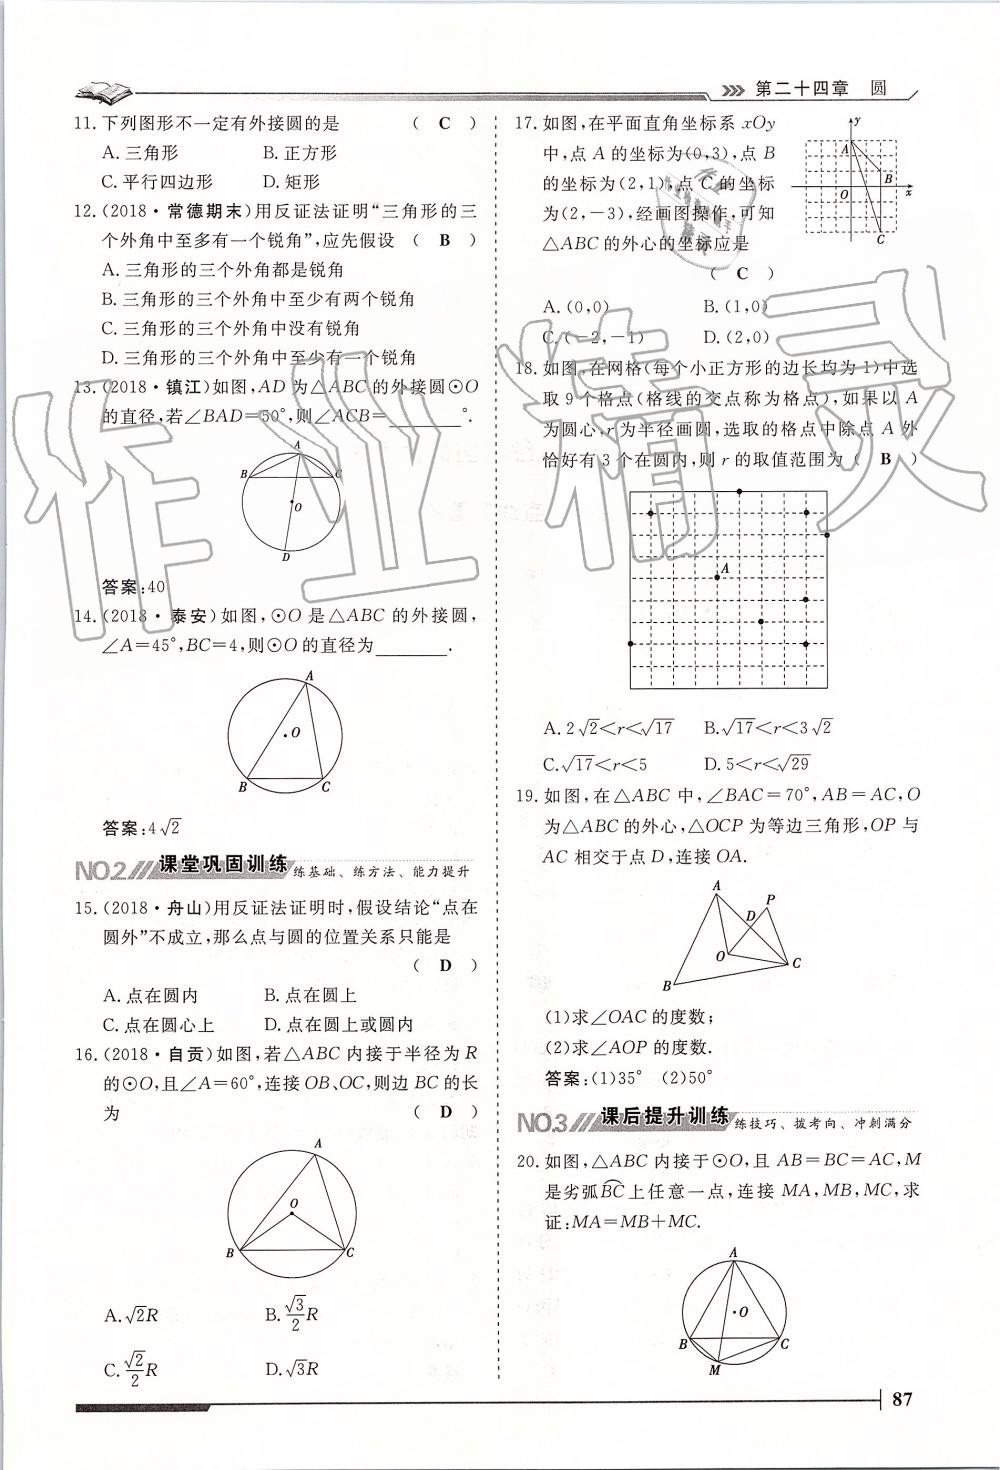 第二十四章 圆
11. 下列图形不一定有外接圆的是 ( C )
A. 三角形 B. 正方形
C. 平行四边形 D. 矩形
12. (2018·常德期末)用反证法证明“三角形的三
个外角中至多有一个锐角”,应先假设 ( B )
A. 三角形的三个外角都是锐角
B. 三角形的三个外角中至少有两个锐角
C. 三角形的三个外角中没有锐角
D. 三角形的三个外角中至少有一个锐角
13. (2018·镇江)如图,AD 为△ABC 的外接圆⊙O
的直径,若∠BAD=50°,则∠ACB=________°.
A
B
C
O
D
答案:40
14. (2018·泰安)如图,⊙O 是△ABC 的外接圆,
∠A=45°,BC=4,则⊙O 的直径为________.
A
O
B
C
答案:4√2
NO.2 课堂巩固训练 练基础、练方法、能力提升
15. (2018·舟山)用反证法证明时,假设结论“点在
圆外”不成立,那么点与圆的位置关系只能是
( D )
A. 点在圆内 B. 点在圆上
C. 点在圆心上 D. 点在圆上或圆内
16. (2018·自贡)如图,若△ABC 内接于半径为 R
的⊙O,且∠A=60°,连接 OB、OC,则边 BC 的长
为 ( D )
A
O
B
C
A. √2R B. √3/2 R
C. √2/2 R D. √3R
17. 如图,在平面直角坐标系 xOy
中,点 A 的坐标为(0,3),点 B
的坐标为(2,1),点 C 的坐标
为(2,-3),经画图操作,可知
△ABC 的外心的坐标应是
( C )
y
A
B
O
x
C
A. (0,0) B. (1,0)
C. (-2,-1) D. (2,0)
18. 如图,在网格(每个小正方形的边长均为 1)中选
取 9 个格点(格线的交点称为格点),如果以 A
为圆心,r 为半径画圆,选取的格点中除点 A 外
恰好有 3 个在圆内,则 r 的取值范围为 ( B )
A
A. 2√2<r<√17 B. √17<r<3√2
C. √17<r<5 D. 5<r<√29
19. 如图,在△ABC 中,∠BAC=70°,AB=AC,O
为△ABC 的外心,△OCP 为等边三角形,OP 与
AC 相交于点 D,连接 OA.
A
P
D
O
C
B
(1)求∠OAC 的度数;
(2)求∠AOP 的度数.
答案:(1)35° (2)50°
NO.3 课后提升训练 练技巧、拨考向、冲刺满分
20. 如图,△ABC 内接于⊙O,且 AB=BC=AC,M
是劣弧BC上任意一点,连接 MA,MB,MC,求
证:MA=MB+MC.
A
O
B
C
M
87
作业精灵